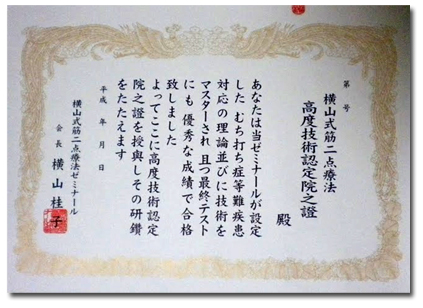 第　号
横山式筋二点療法
高度技術認定院之證
殿
あなたは当ゼミナールが設定
した むち打ち症等難疾患
対応の理論並びに技術を
マスターされ 且つ最終テスト
にも 優秀な成績で合格
致しました
よってここに高度技術認定
院之證を授與しその研鑽
をたたえます
平成　年　月　日
横山式筋二点療法ゼミナール
会長　横山桂子